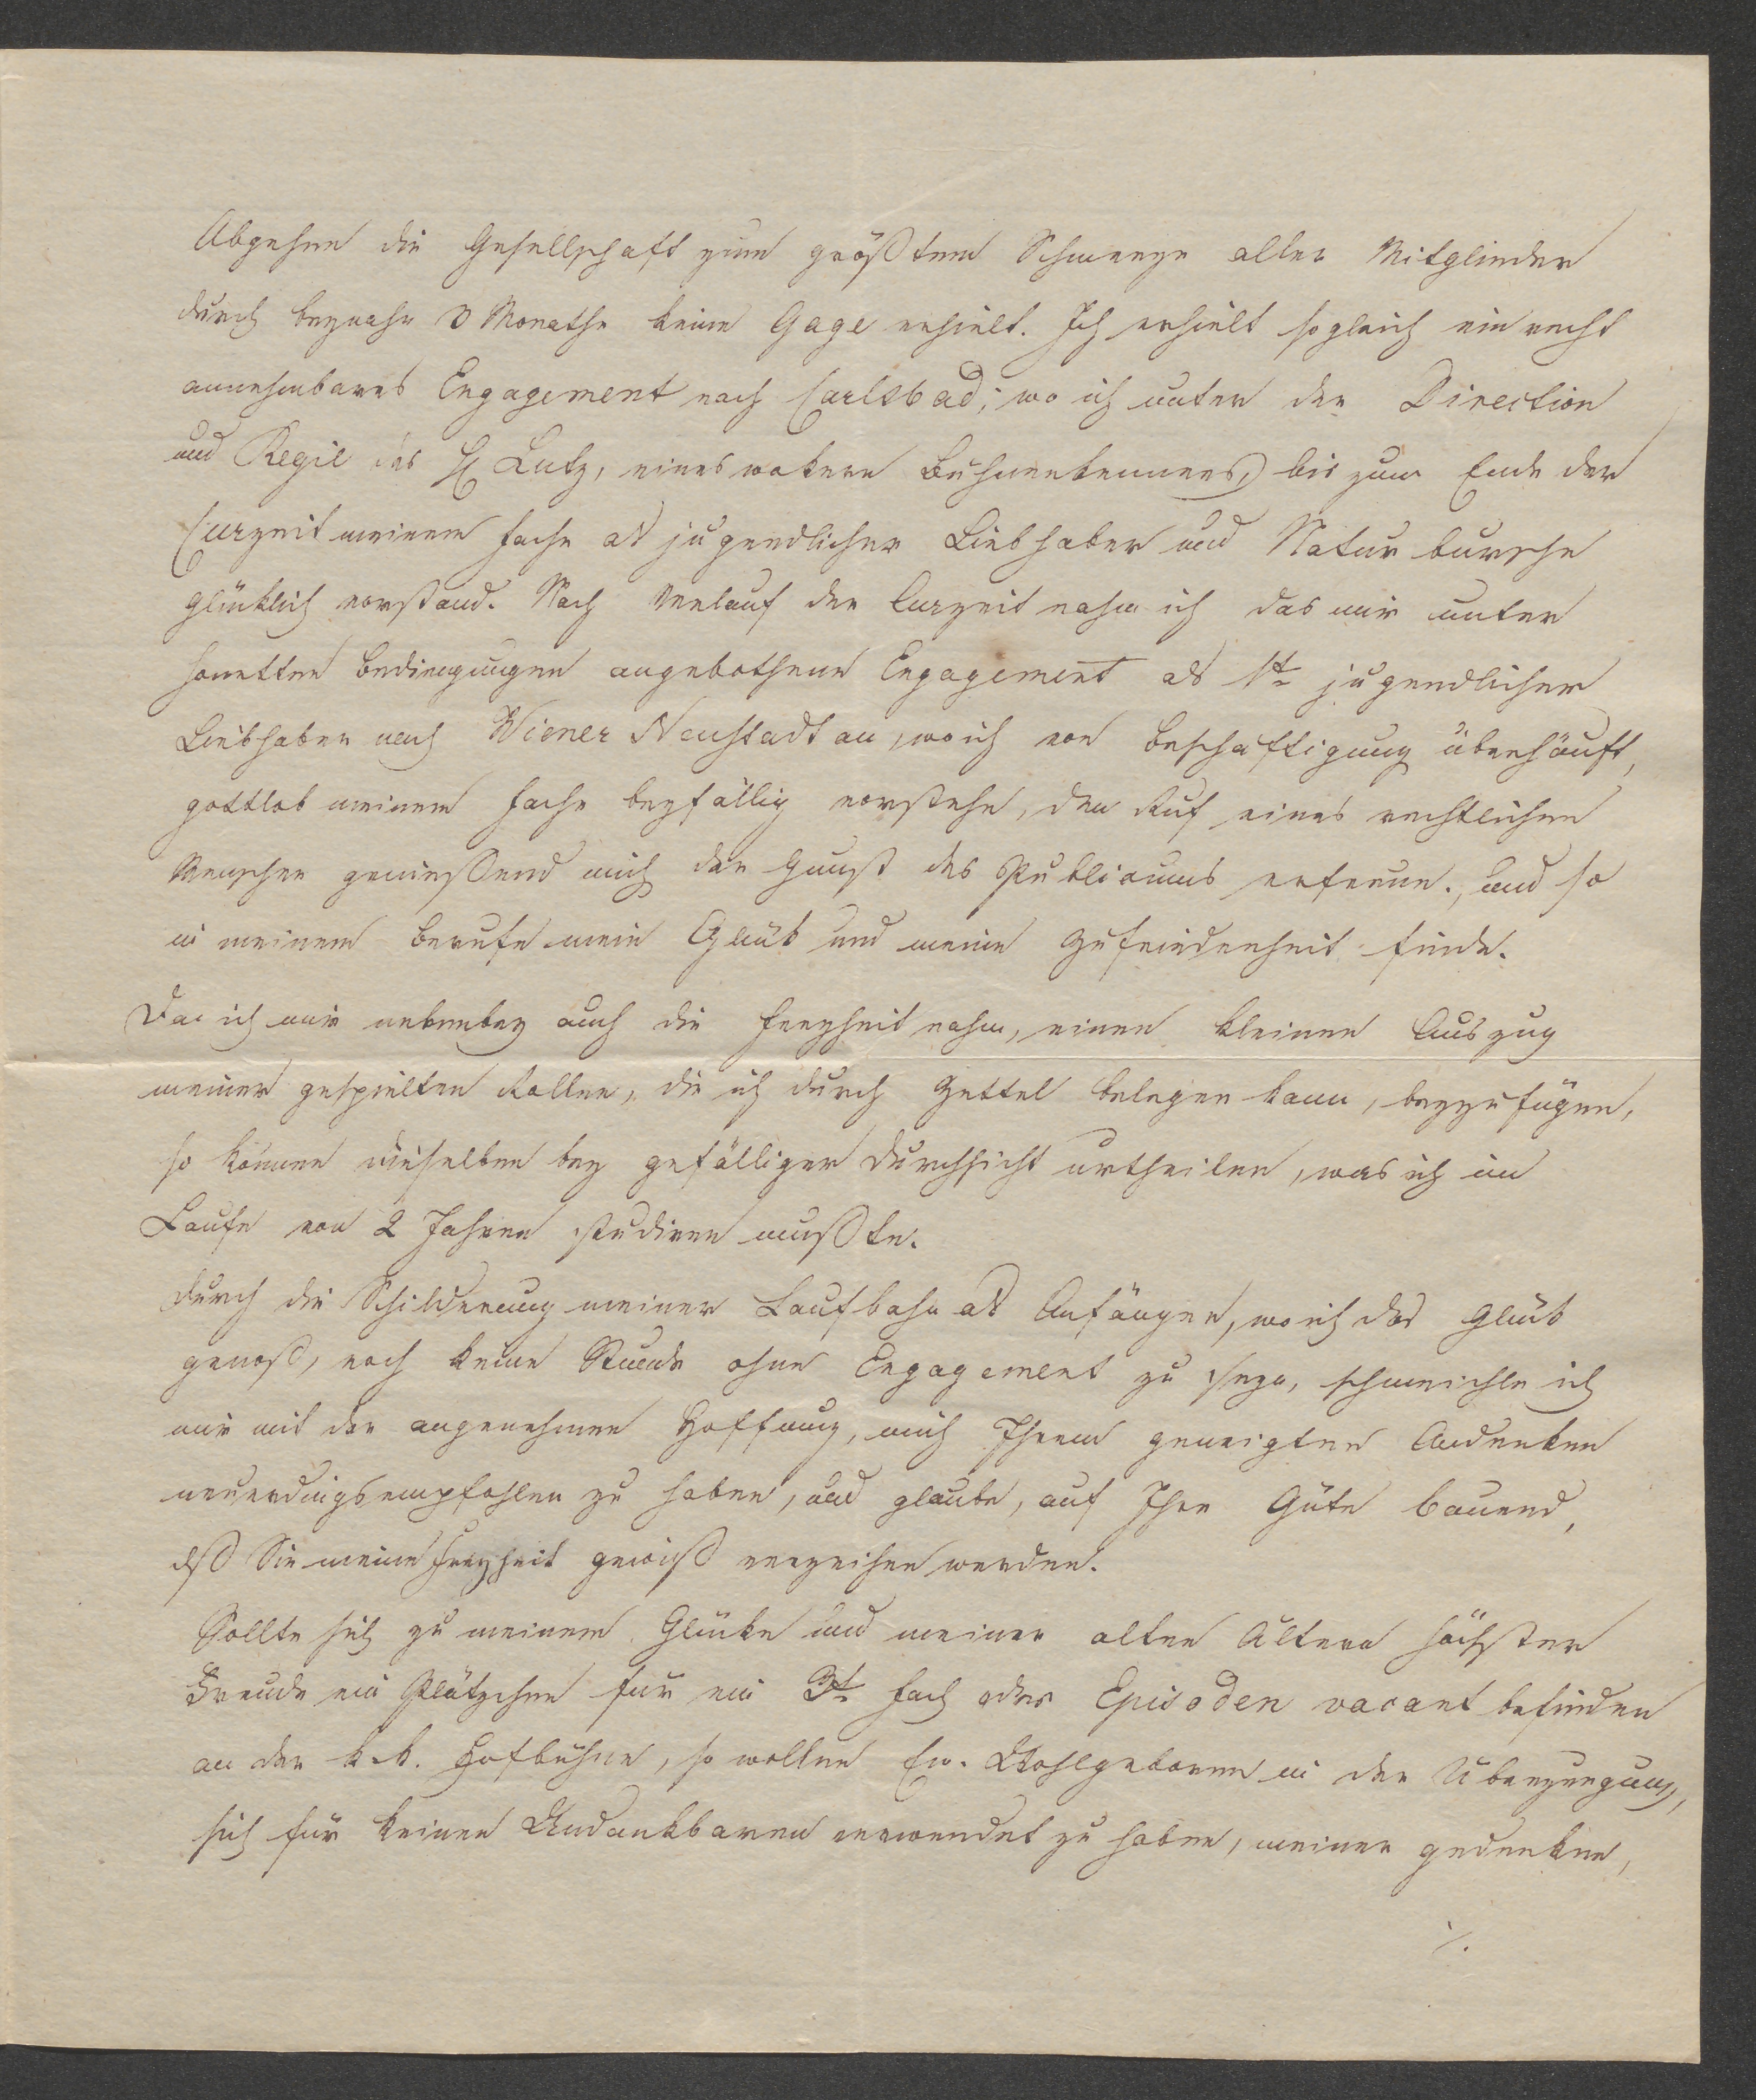 Abgehen die Gesellschaft zum größtem Schmerze aller Mitglieder
durch beynahe 3 Monathe keine Gage erhielt. Ich erhielt sogleich ein recht
annehmbares Engagement nach Carlsbad, wo ich unter der Direction
und Regie des H Lutz, eines wakern Bühnenkenners, bis zum Ende der
Curzeit meinem Fache als jugendlicher Liebhaber und Naturbursche
glücklich vorstand. Nach Verlauf der Curzeit nahm ich das mir unter
honetten Bedingungen angebothene Engagement als 1te jugendlicher
Liebhaber nach Wiener Neustadt an, wo ich von Beschäftigung überhäuft,
gottlob meinem Fache beyfällig vorstehe, den Ruf eines rechtlichen
Menschen geniessend mich der Gunst des Publicums erfreue, und so
in meinem Berufe mein Glück und meine Zufriedenheit finde.
Da ich mir nebenbey auch die Freyheit nahm, einen kleinen Auszug
meiner gespielten Rollen, die ich durch Zettel belegen kann, beyzufügen,
so können dieselben bey gefälliger Durchsicht urtheilen, was ich im
Laufe von 2 Jahren studiren mußte.
Durch die Schilderung meiner Laufbahn als Anfänger, wo ich das Glück
genoß, noch keine Stunde ohne Engagement zu seyn, schmeichle ich
mir mit der angenehmen Hoffnung, mich Ihrem geneigten Andenken
neuerdings empfohlen zu haben, und glaube, auf Ihre Güte bauend,
dß Sie meine Freyheit gewiß verzeihen werden.
Sollte sich zu meinem Glücke und meiner alten Ältern höchster
Freude ein Plätzchen für ein 3te Fach oder Episoden vacant befinden
an der k.k. Hofbühne, so wollen Ew. Wohlgeboren in der Überzeugung,
sich für keinen Undankbaren verwendet zu haben, meiner gedenken,
./.